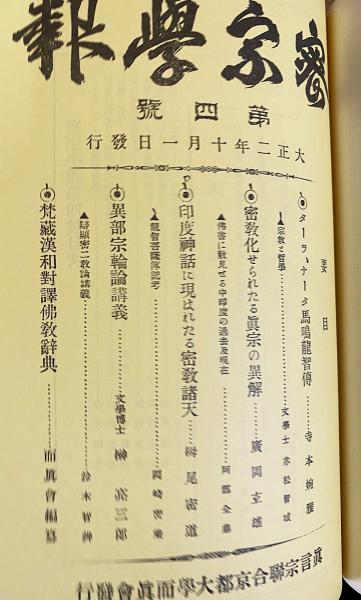 密宗學報
第四號
大正二年十月一日發行
要目
ターラナータ馬鳴龍智傳……寺本婉雅
▲宗教と哲學……文學士 赤松智城
密教化せられたる眞宗の異解……廣岡立雄
▲佛書に散見せる中印度の過去及現在……阿部全雄
印度神話に現はれたる密教諸天……栂尾密道
▲龍智菩薩傳記考……岡崎密乘
異部宗輪論講義……文學博士 榊亮三郎
▲辯顯密二教論講義……鈴木智辨
梵藏漢和對譯佛教辭典……而眞會編纂
眞言宗聯合京都大學而眞會發行